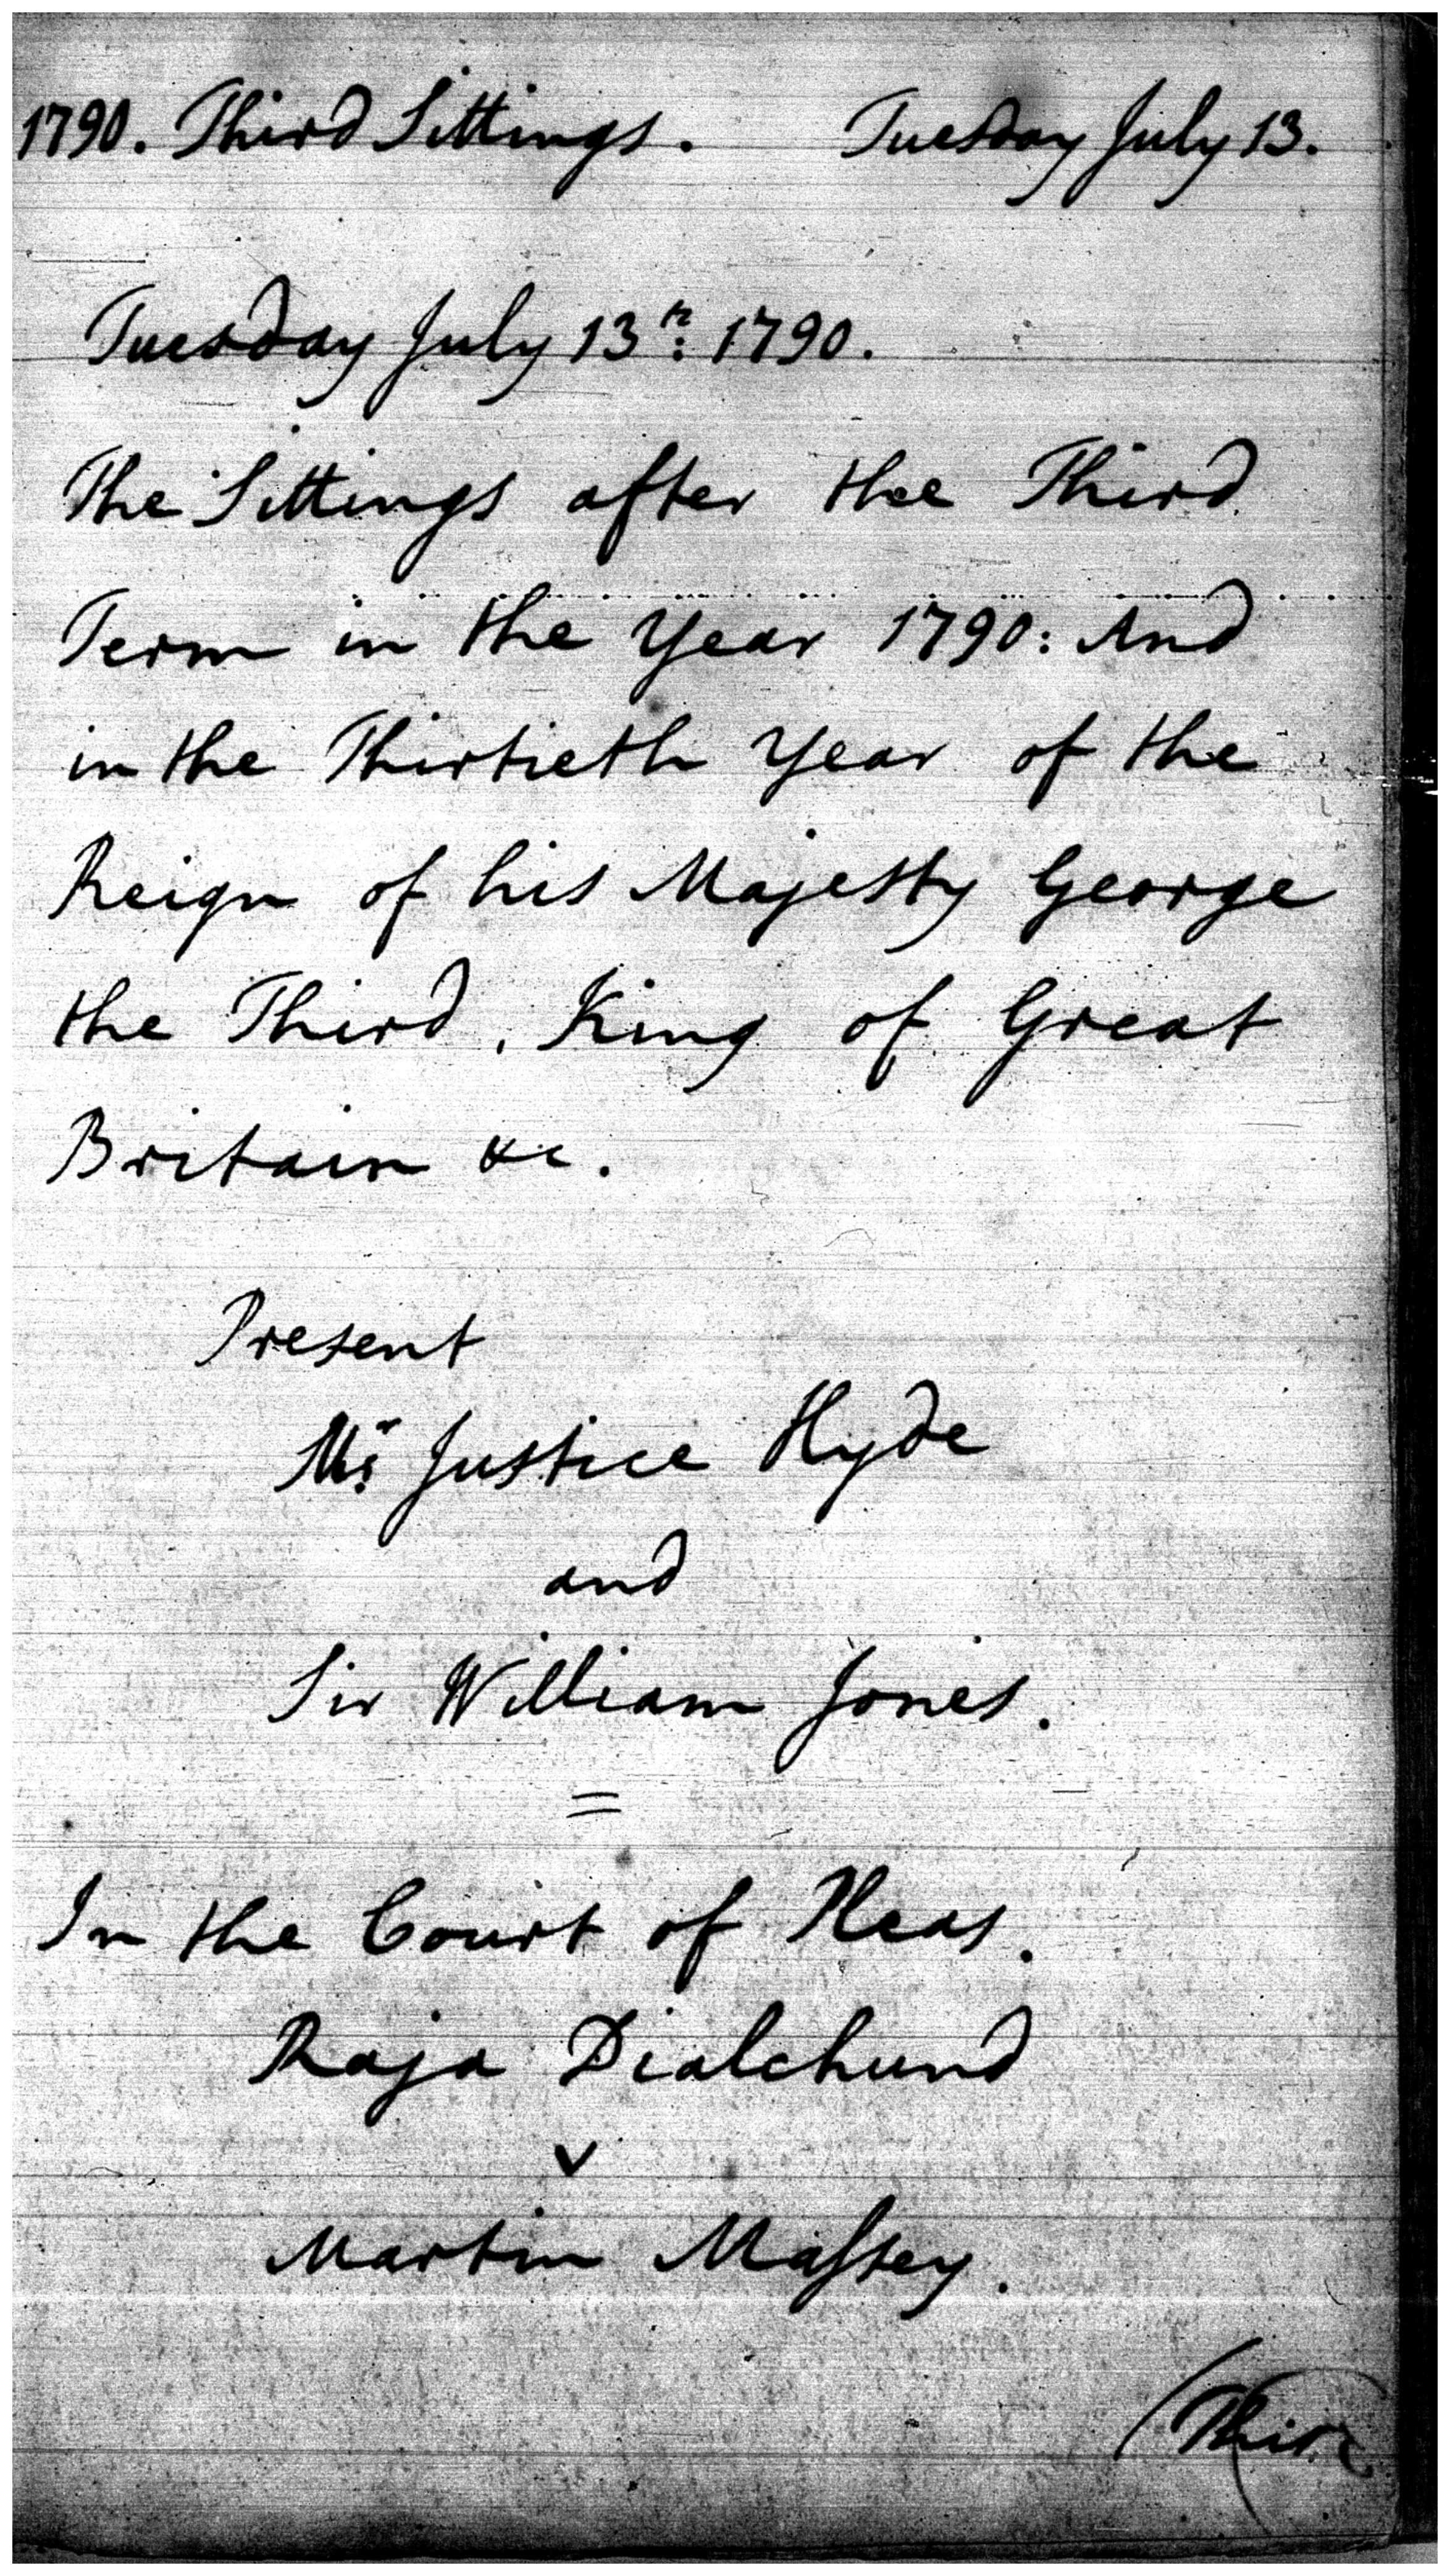 1790. Third Sittings. Tuesday July 13.
Tuesday July 13th. 1790.
The Sittings after the Third
Term in the Year 1790: And
in the Thirtieth Year of the
Reign of his Majesty George
the Third, King of Great
Britain &c.
Present
Mr. Justice Hyde
and
Sir William Jones.
=
In the Court of Pleas.
Raja Dialchund
v
Martin Maſsey.